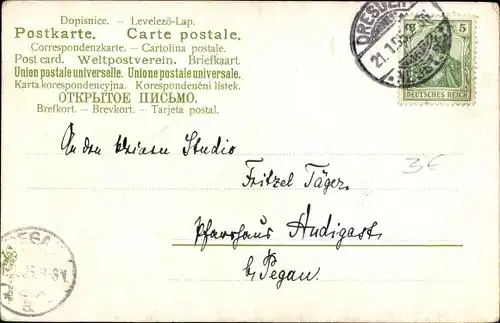 Dopisnice. – Levelező-Lap.
Postkarte. Carte postale.
Correspondenzkarte. – Cartolina postale.
Post card. Weltpostverein. Briefkaart.
Union postale universelle. Unione postale universale.
Karta korespondencyjna. Korespondenéni lístek.
ОТКРЫТОЕ ПИСЬМО.
Brefkort. – Brevkort. – Tarjeta postal.
DRESDEN
21.1.
5
DEUTSCHES REICH
An den kleinen Studio
3€
Fritzel Täger.
Pfarrhaus Audigast
b/ Pegau.
PEGA